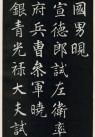 國男晛
宣德郎試左衛率
府兵曹參軍曉
銀青光禄大夫試